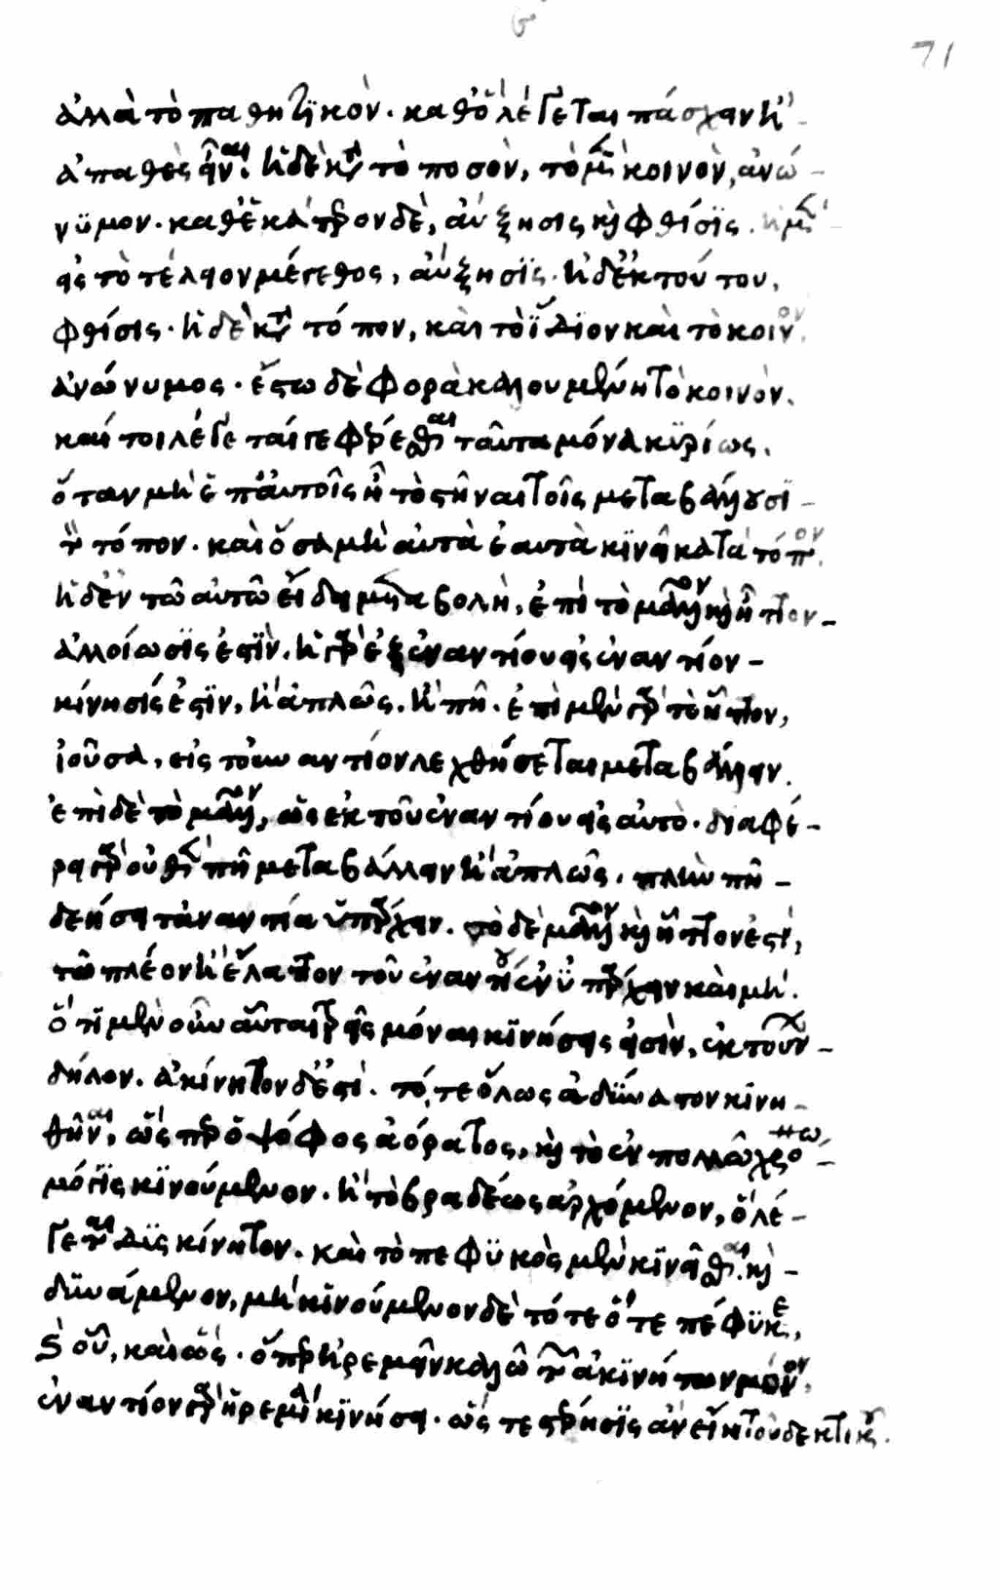 71
ἀλλὰ τὸ παθητικὸν. καθ' ὃ λέγεται πάσχειν ἢ
ἀπαθὲς εἶναι. ἡ δὲ κατὰ τὸ ποσὸν, τὸ μὲν κοινὸν, ἀνώ-
νυμον. καθ' ἑκάτερον δὲ, αὔξησις καὶ φθίσις. ἡ μὲν
εἰς τὸ τέλειον μέγεθος, αὔξησις. ἡ δ' ἐκ τούτου,
φθίσις. ἡ δὲ κατὰ τόπον, καὶ τὸ ἴδιον καὶ τὸ κοινὸν
ἀνώνυμος. ἔστω δὲ φορὰ καλουμένη τὸ κοινὸν.
καίτοι λέγεταί γε φέρεσθαι ταῦτα μόνα κυρίως.
ὅταν μὴ ἐπ' αὐτοῖς ἦ τὸ στῆναι τοῖς μεταβάλλουσι
τὸν τόπον. καὶ ὅσα μὴ αὐτὰ ἑαυτὰ κινεῖ κατὰ τόπον.
ἡ δ' ἐν τῶ αὐτῶ εἴδει μεταβολὴ, ἐπὶ τὸ μᾶλλον καὶ ἧττον
ἀλλοίωσις ἐστὶν. ἡ γὰρ ἐξ ἐναντίου εἰς ἐναντίον
κίνησίς ἐστιν, ἢ ἁπλῶς. ἢ πῆ. ἐπὶ μὲν γὰρ τὸ ἧττον,
ἰοῦσα, εἰς τοὐναντίον λεχθήσεται μεταβάλλειν.
ἐπὶ δὲ τὸ μᾶλλον, ὡς ἐκ τοῦ ἐναντίου εἰς αὐτὸ. διαφέ-
ρει γὰρ οὐθὲν πῆ μεταβάλλειν ἢ ἁπλῶς. πλὴν πῆ
δεήσει τἀναντία ὑπάρχειν. τὸ δὲ μᾶλλον καὶ ἧττον ἐστὶ,
τῶ πλέον ἢ ἔλαττον τοῦ ἐναντίου ἐνυπάρχειν καὶ μὴ.
ὅτι μὲν οὖν αὗται τρεῖς μόναι κινήσεις εἰσὶν, ἐκ τούτων
δῆλον. ἀκίνητον δ' ἐστὶ. τό, τε ὅλως ἀδύνατον κινη-
θῆναι, ὥσπερ ὁ ψόφος ἀόρατος, καὶ τὸ ἐν πολλῶ χρόνω
μόγις κινούμενον. ἢ τὸ βραδέως ἀρχόμενον, ὃ λέ-
γεται δυσκίνητον. καὶ τὸ πεφυκὸς μὲν κινεῖσθαι καὶ
δυνάμενον, μὴ κινούμενον δὲ τότε ὅτε πέφυκε,
καὶ οὗ, καὶ ὥς. ὅπερ ἠρεμεῖν καλῶ τῶν ἀκινήτων μόνον.
ἐναντίον γὰρ ἠρεμία κινήσει. ὥστε στέρησις ἂν εἴη τοῦ δεκτικοῦ.